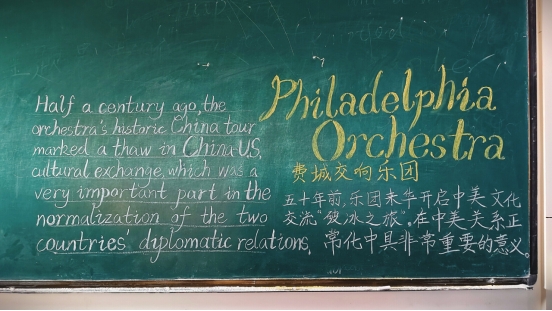 Philadelphia
Orchestra
费城交响乐团
Half a century ago, the
orchestra's historic China tour
marked a thaw in China-U.S.
cultural exchange, which was a
very important part in the
normalization of the two
countries' diplomatic relations.
五十年前,乐团来华开启中美文化
交流“破冰之旅”。在中美关系正
常化中具非常重要的意义。